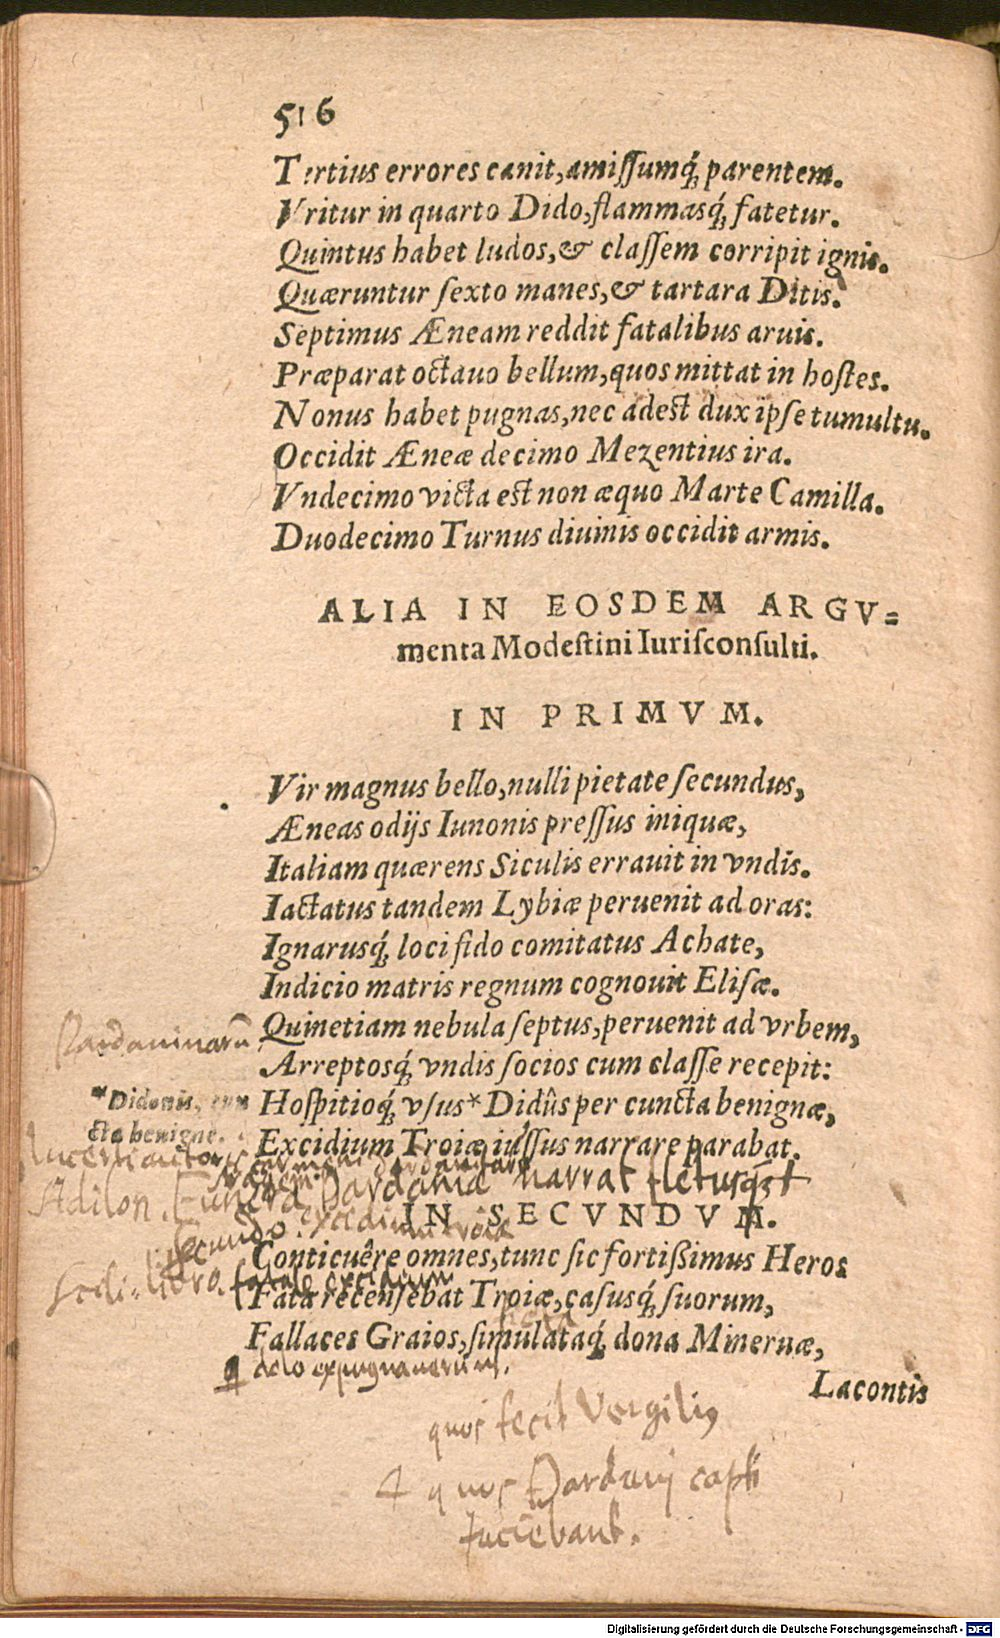 516
Tertius errores canit, amiſſumq́; parentem.
Vritur in quarto Dido, flammasq́; fatetur.
Quintus habet ludos, & claſſem corripit ignis.
Quæruntur ſexto manes, & tartara Ditis.
Septimus Æneam reddit fatalibus aruis.
Præparat octauo bellum, quos mittat in hoſtes.
Nonus habet pugnas, nec adeſt dux ipſe tumultu.
Occidit Æneæ decimo Mezentius ira.
Vndecimo victa eſt non æquo Marte Camilla.
Duodecimo Turnus diuinis occidit armis.
ALIA IN EOSDEM ARGV-
menta Modeſtini Iuriſconſulti.
IN PRIMVM.
Vir magnus bello, nulli pietate ſecundus,
Æneas odijs Iunonis preſſus iniquæ,
Italiam quærens Siculis errauit in vndis.
Iactatus tandem Lybiæ peruenit ad oras:
Ignarusq́; loci fido comitatus Achate,
Indicio matris regnum cognouit Eliſæ.
Quinetiam nebula ſeptus, peruenit ad vrbem,
Arreptosq́; vndis ſocios cum claſſe recepit:
*Didonis, cun
cta benigne.
Hoſpitioq́; vſus* Didûs per cuncta benignæ,
Excidium Troiæ iuſſus narrare parabat.
Funera Dardaniæ narrat fletusq́;
IN SECVNDVM.
Secundo excidium
Conticuêre omnes, tunc ſic fortiſsimus Heros
libro. fatale excidium
Fata recenſebat Troiæ, caſusq́; ſuorum,
Fallaces Graios, ſimulataq́; dona Mineruæ,
dolo expugnauerunt.
Lacontis
quos fecit Vergili9
quos Dardanij capti